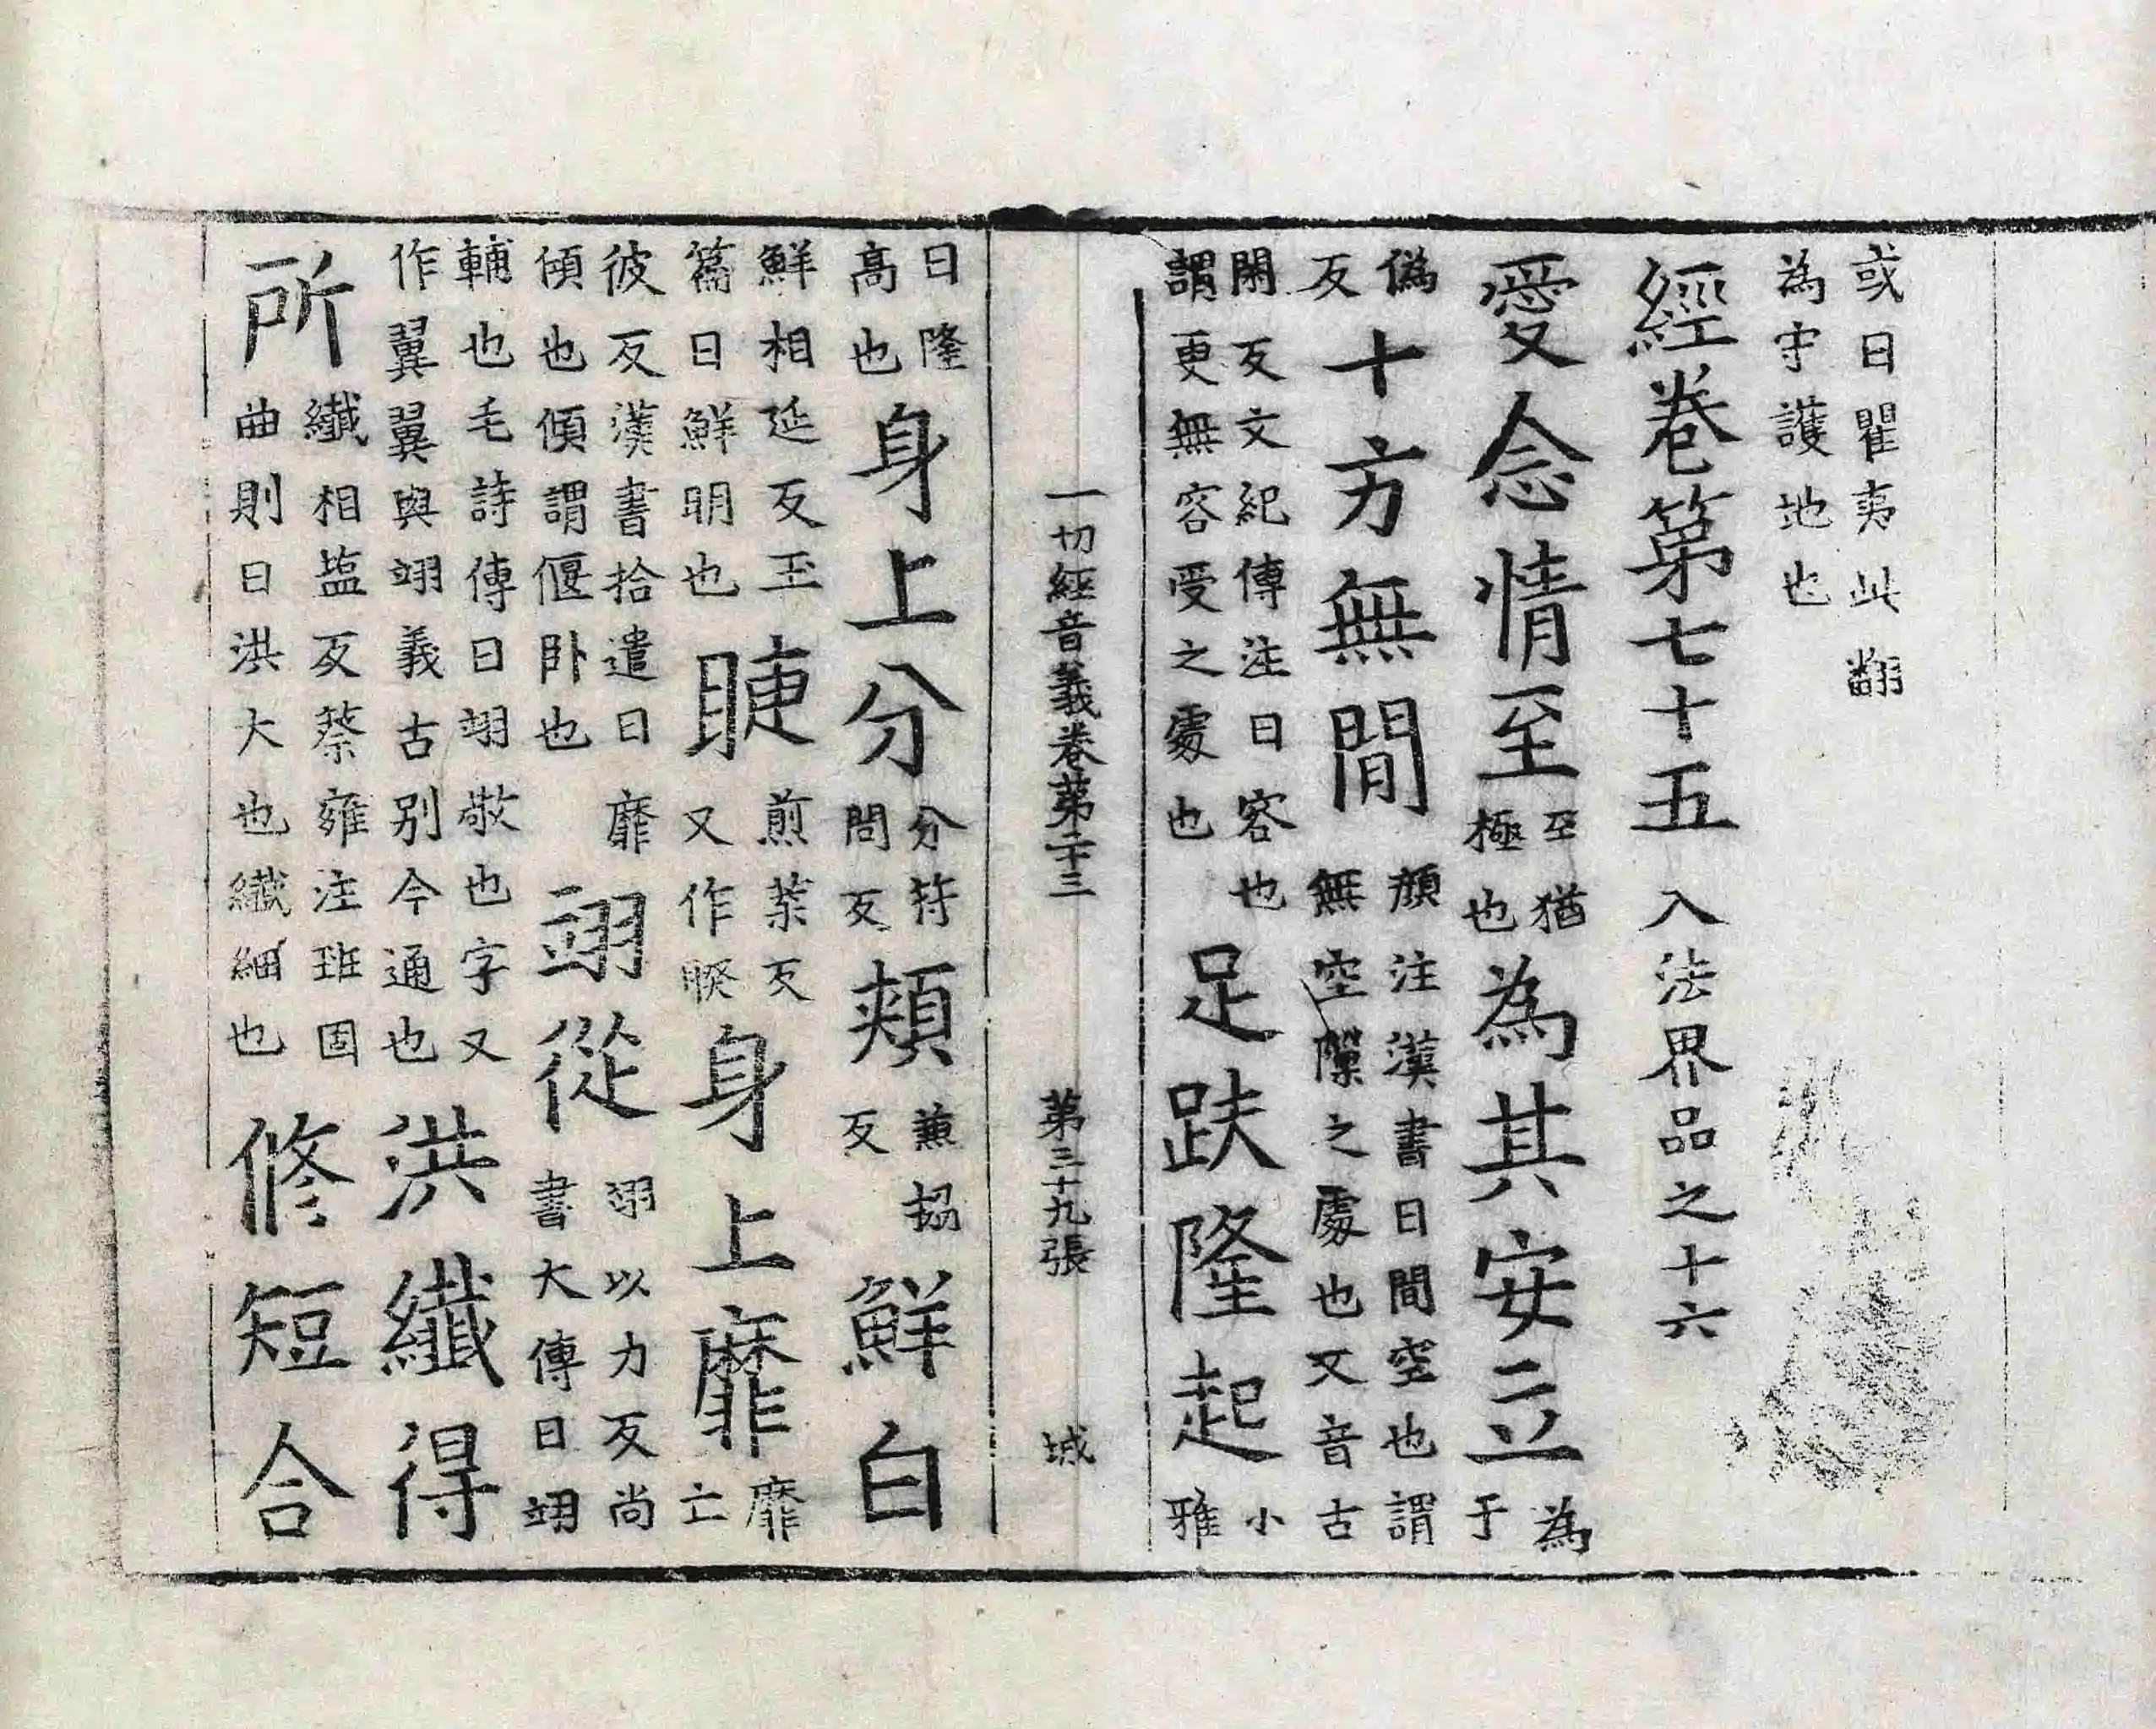 或曰瞿夷此翻為守護地也
經卷第七十五入法界品之十六
愛念情至至猶極也為其安立為于
偽反十方無間顏注漢書曰間空也謂無空隙之處也又音古
閑反文紀傳注曰容也謂更無容受之處也足趺隆起小雅
一切經音義卷第二十三 第三十九張 城
曰隆高也身上分分符問反頰兼協反鮮白
鮮相延反玉篇曰鮮明也睫煎葉反又作䀹身上靡靡亡
彼反漢書拾遺曰靡傾也傾謂偃卧也翊從翊以力反尚書大傳曰翊
輔也毛詩傳曰翊敬也字又作翼翼與翊義古别今通也洪纖得
所纖相塩反蔡雍注班固曲則曰洪大也纖細也修短合